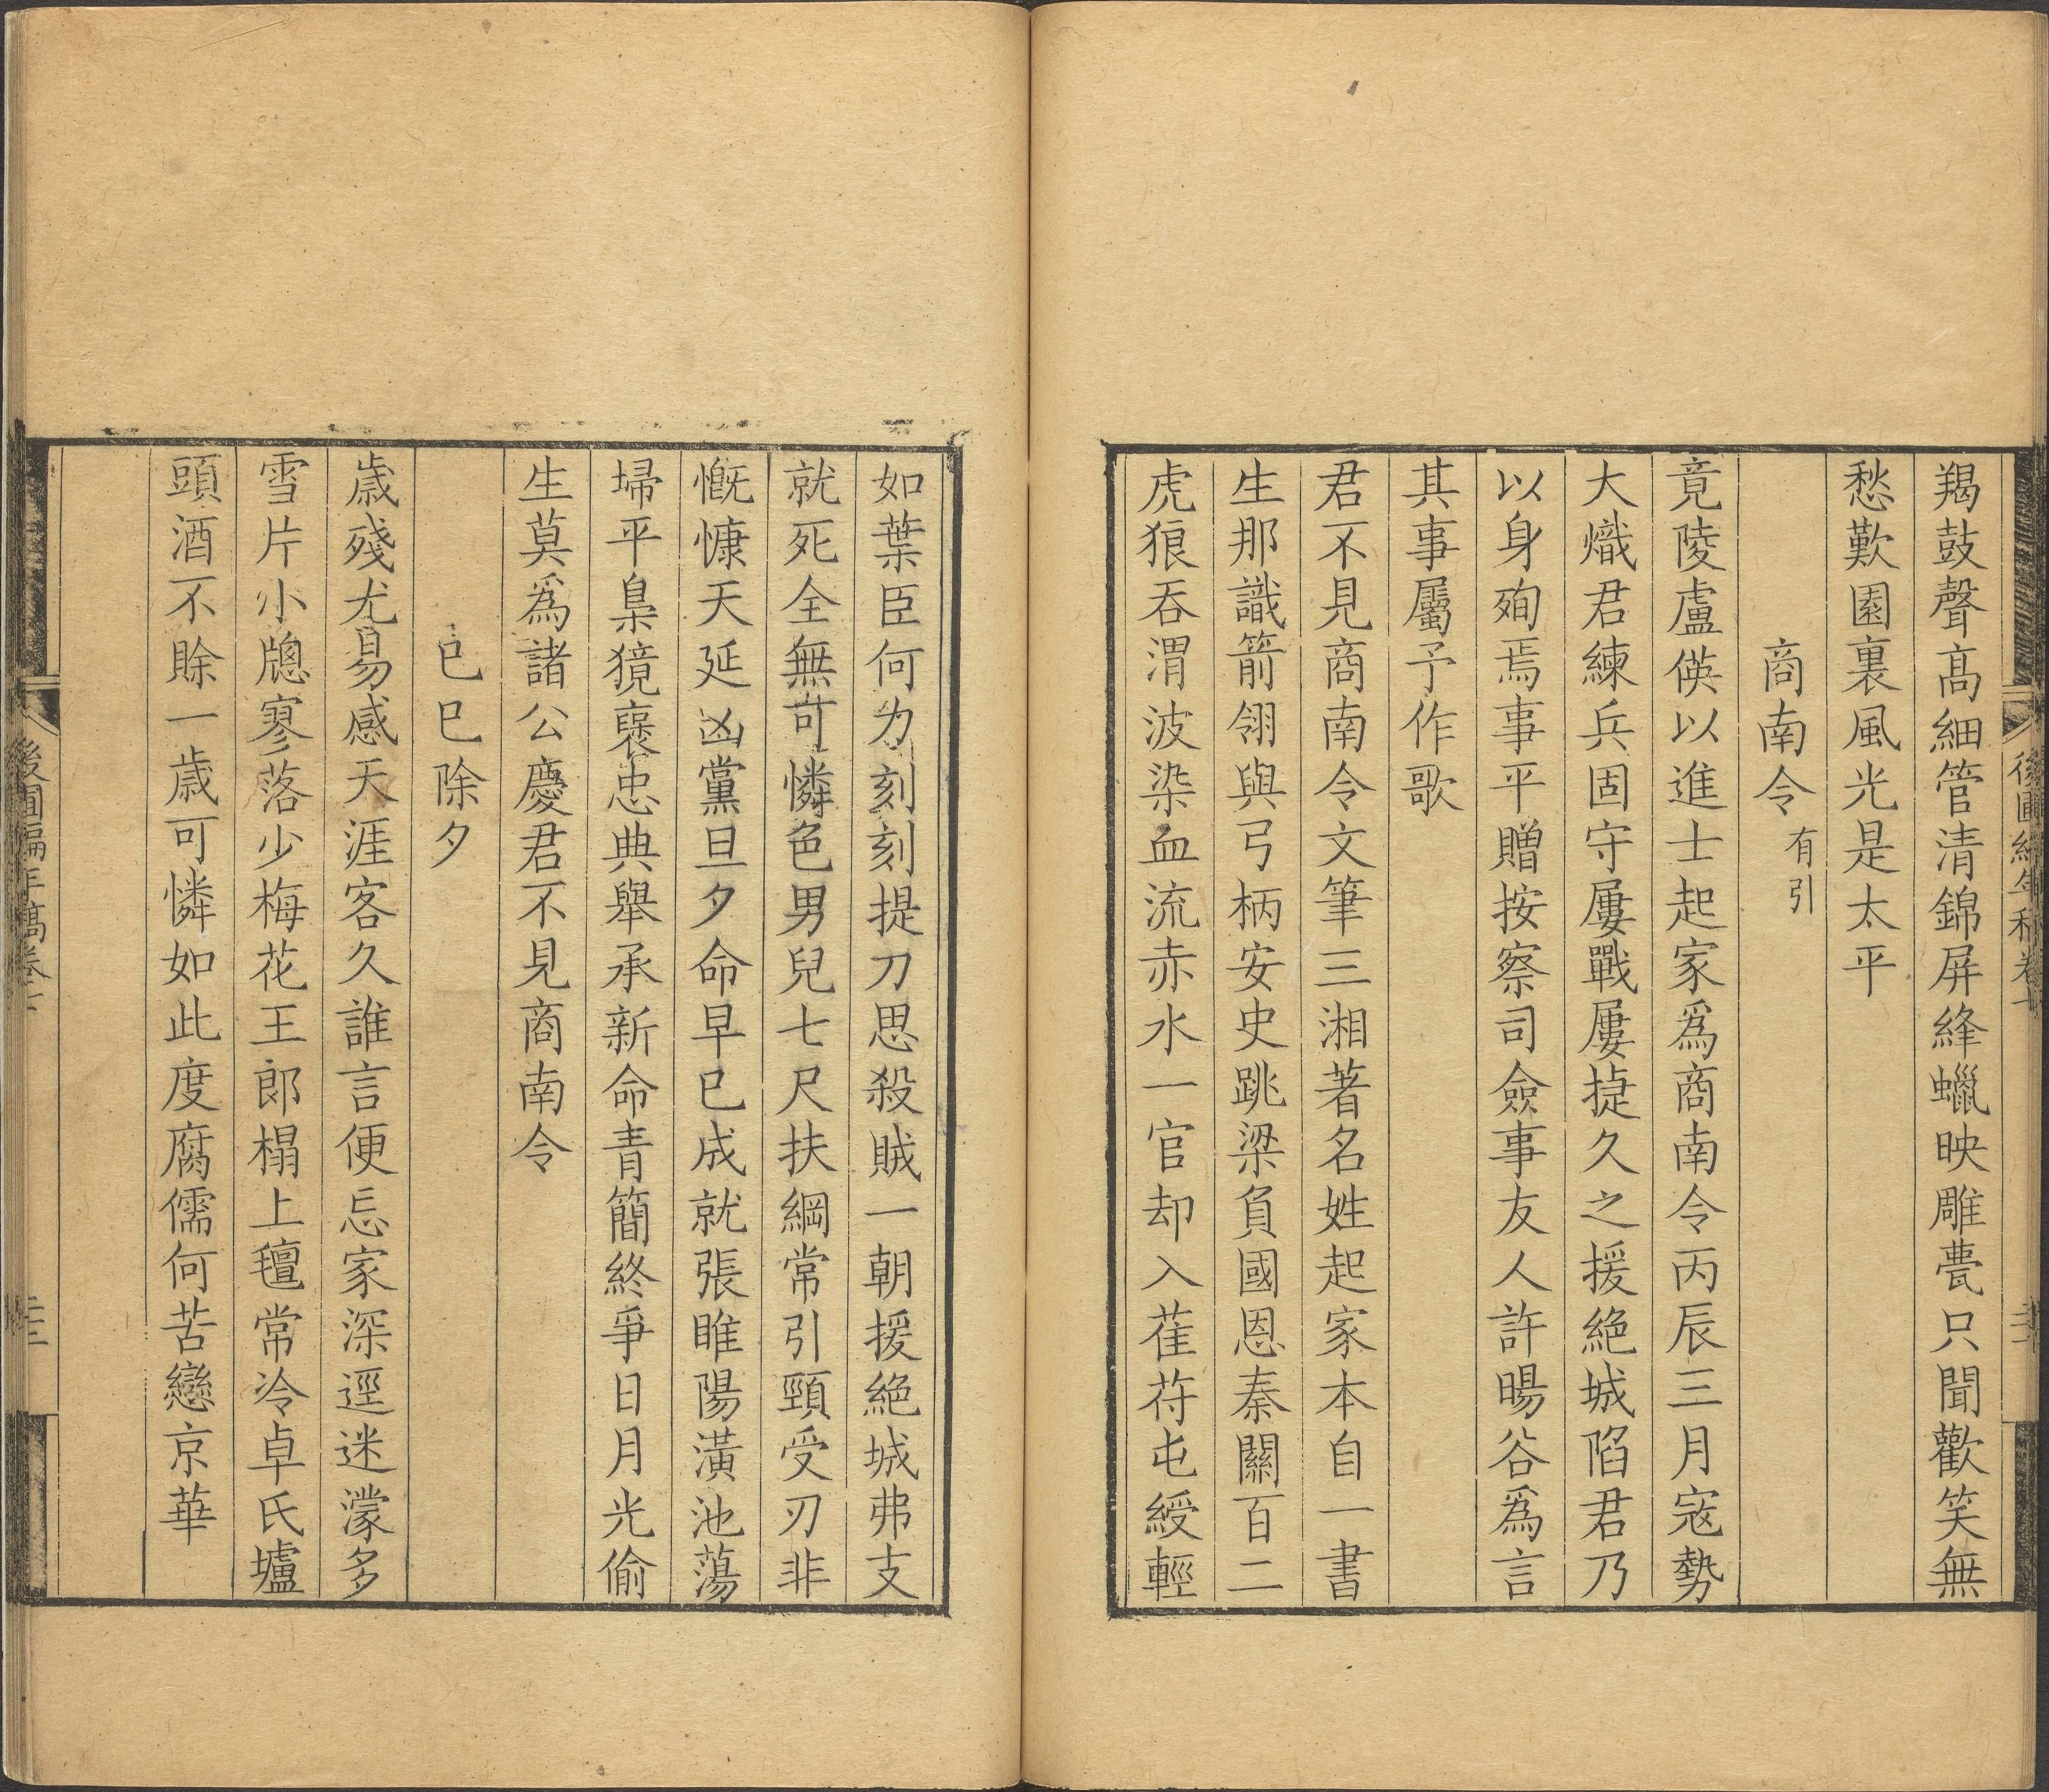 羯鼓聲高細管清錦屏絳蠟映雕甍只聞歡笑無
愁歎園裏風光是太平
商南令有引
竟陵盧偀以進士起家爲商南令丙辰三月寇勢
大熾君練兵固守屢戰屢捷久之援絶城陷君乃
以身殉焉事平贈按察司僉事友人許暘谷爲言
其事屬予作歌
君不見商南令文筆三湘著名姓起家本自一書
生那識箭翎與弓柄安史跳梁負國恩秦關百二
虎狼吞渭波染血流赤水一官却入萑苻屯綬輕
如葉臣何力刻刻提刀思殺賊一朝援絶城弗支
就死全無可憐色男兒七尺扶綱常引頸受刃非
慨慷天延凶黨旦夕命早已成就張睢陽潢池蕩
埽平梟獍褒忠典舉承新命青簡終爭日月光偷
生莫爲諸公慶君不見商南令
己巳除夕
歲殘尤易感天涯客久誰言便忘家深逕迷濛多
雪片小牕寥落少梅花王郎榻上氊常冷卓氏壚
頭酒不賖一歲可憐如此度腐儒何苦戀京華
後圃編年稿卷十
後圃編年稿卷十